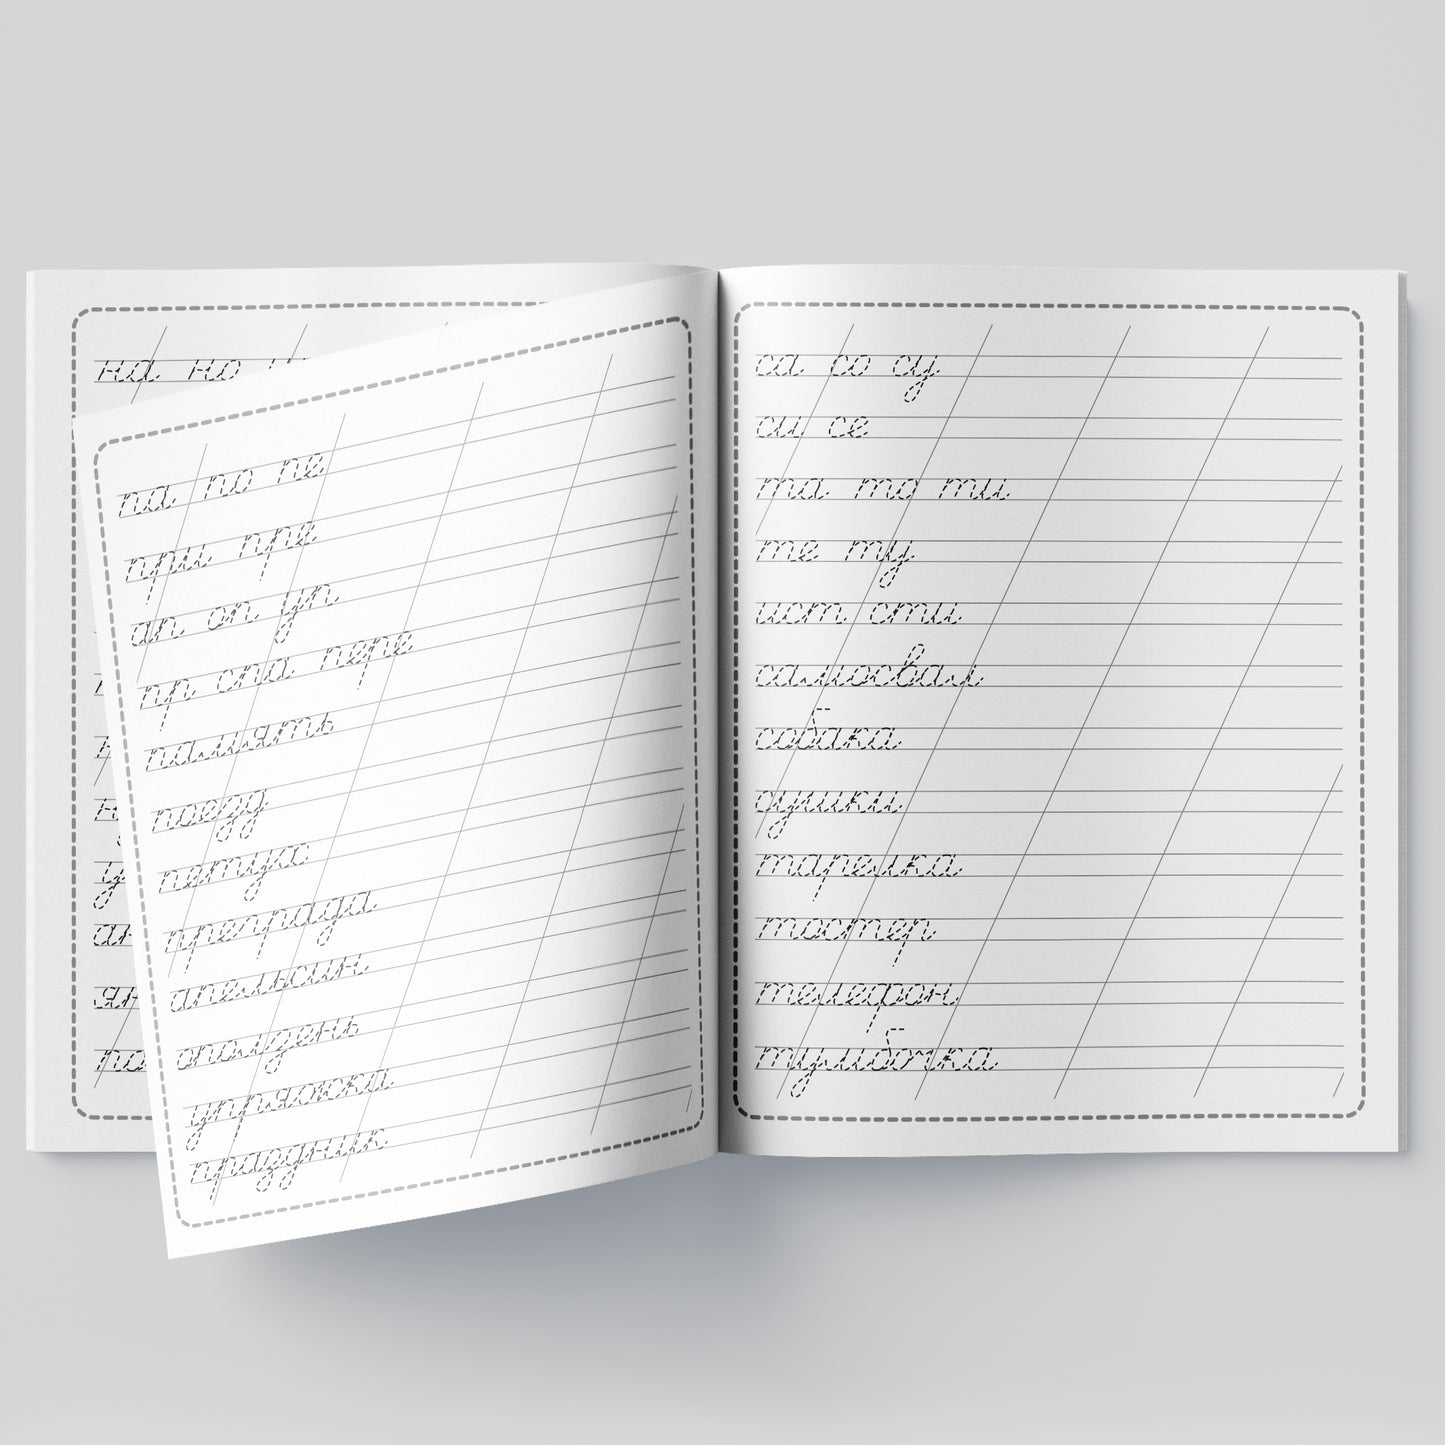 на но
па по пе
при пре
ап оп уп
пр опа пере
память
поезд
петух
преграда
апельсин
опалдень
упряжка
праздник
са со су
си се
та то ти
те ту
ист сти
самосвал
собака
сушки
тарелка
мостер
телефон
тумбочка